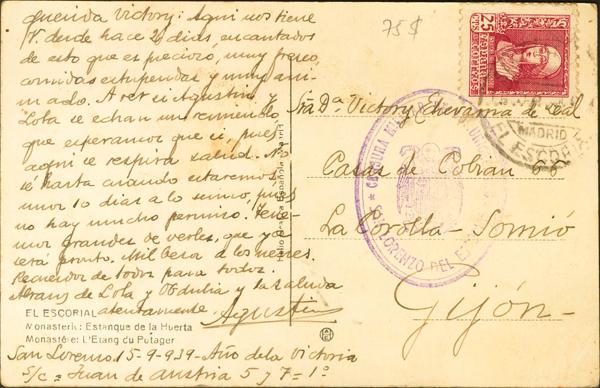 Querida Victory: Aquí nos tiene
V. desde hace 2 días encantados
de esto que es precioso, muy fresco,
comidas estupendas y muy ani-
mado. A ver si Agustín y
Lola se echan un remiendo,
que esperamos que si, pues
aquí se respira salud. No
se hasta cuando estaremos
unos 10 días a lo sumo, pues
no hay mucho permiso. Tene-
mos grandes de verles, que ya
será pronto. Mil besos a los nenes.
Recuerdos de todos para todos.
Abrazos de Lola y Obdulia y la saluda
atentamente Agustín
EL ESCORIAL
Monasterio: Estanque de la Huerta
Monastère: L'Etang du Potager
San Lorenzo 15-9-939 - Año de la Victoria
S/c = Juan de Austria 5 y 7 - 1º
75$
25
MADRID
EL ESCORIAL
CENSURA MILITAR
SAN LORENZO DEL ESCORIAL
Sra Dª Victory Echevarria de Leal
Casas de Cobian 66
La Corolla - Somió
Gijón -